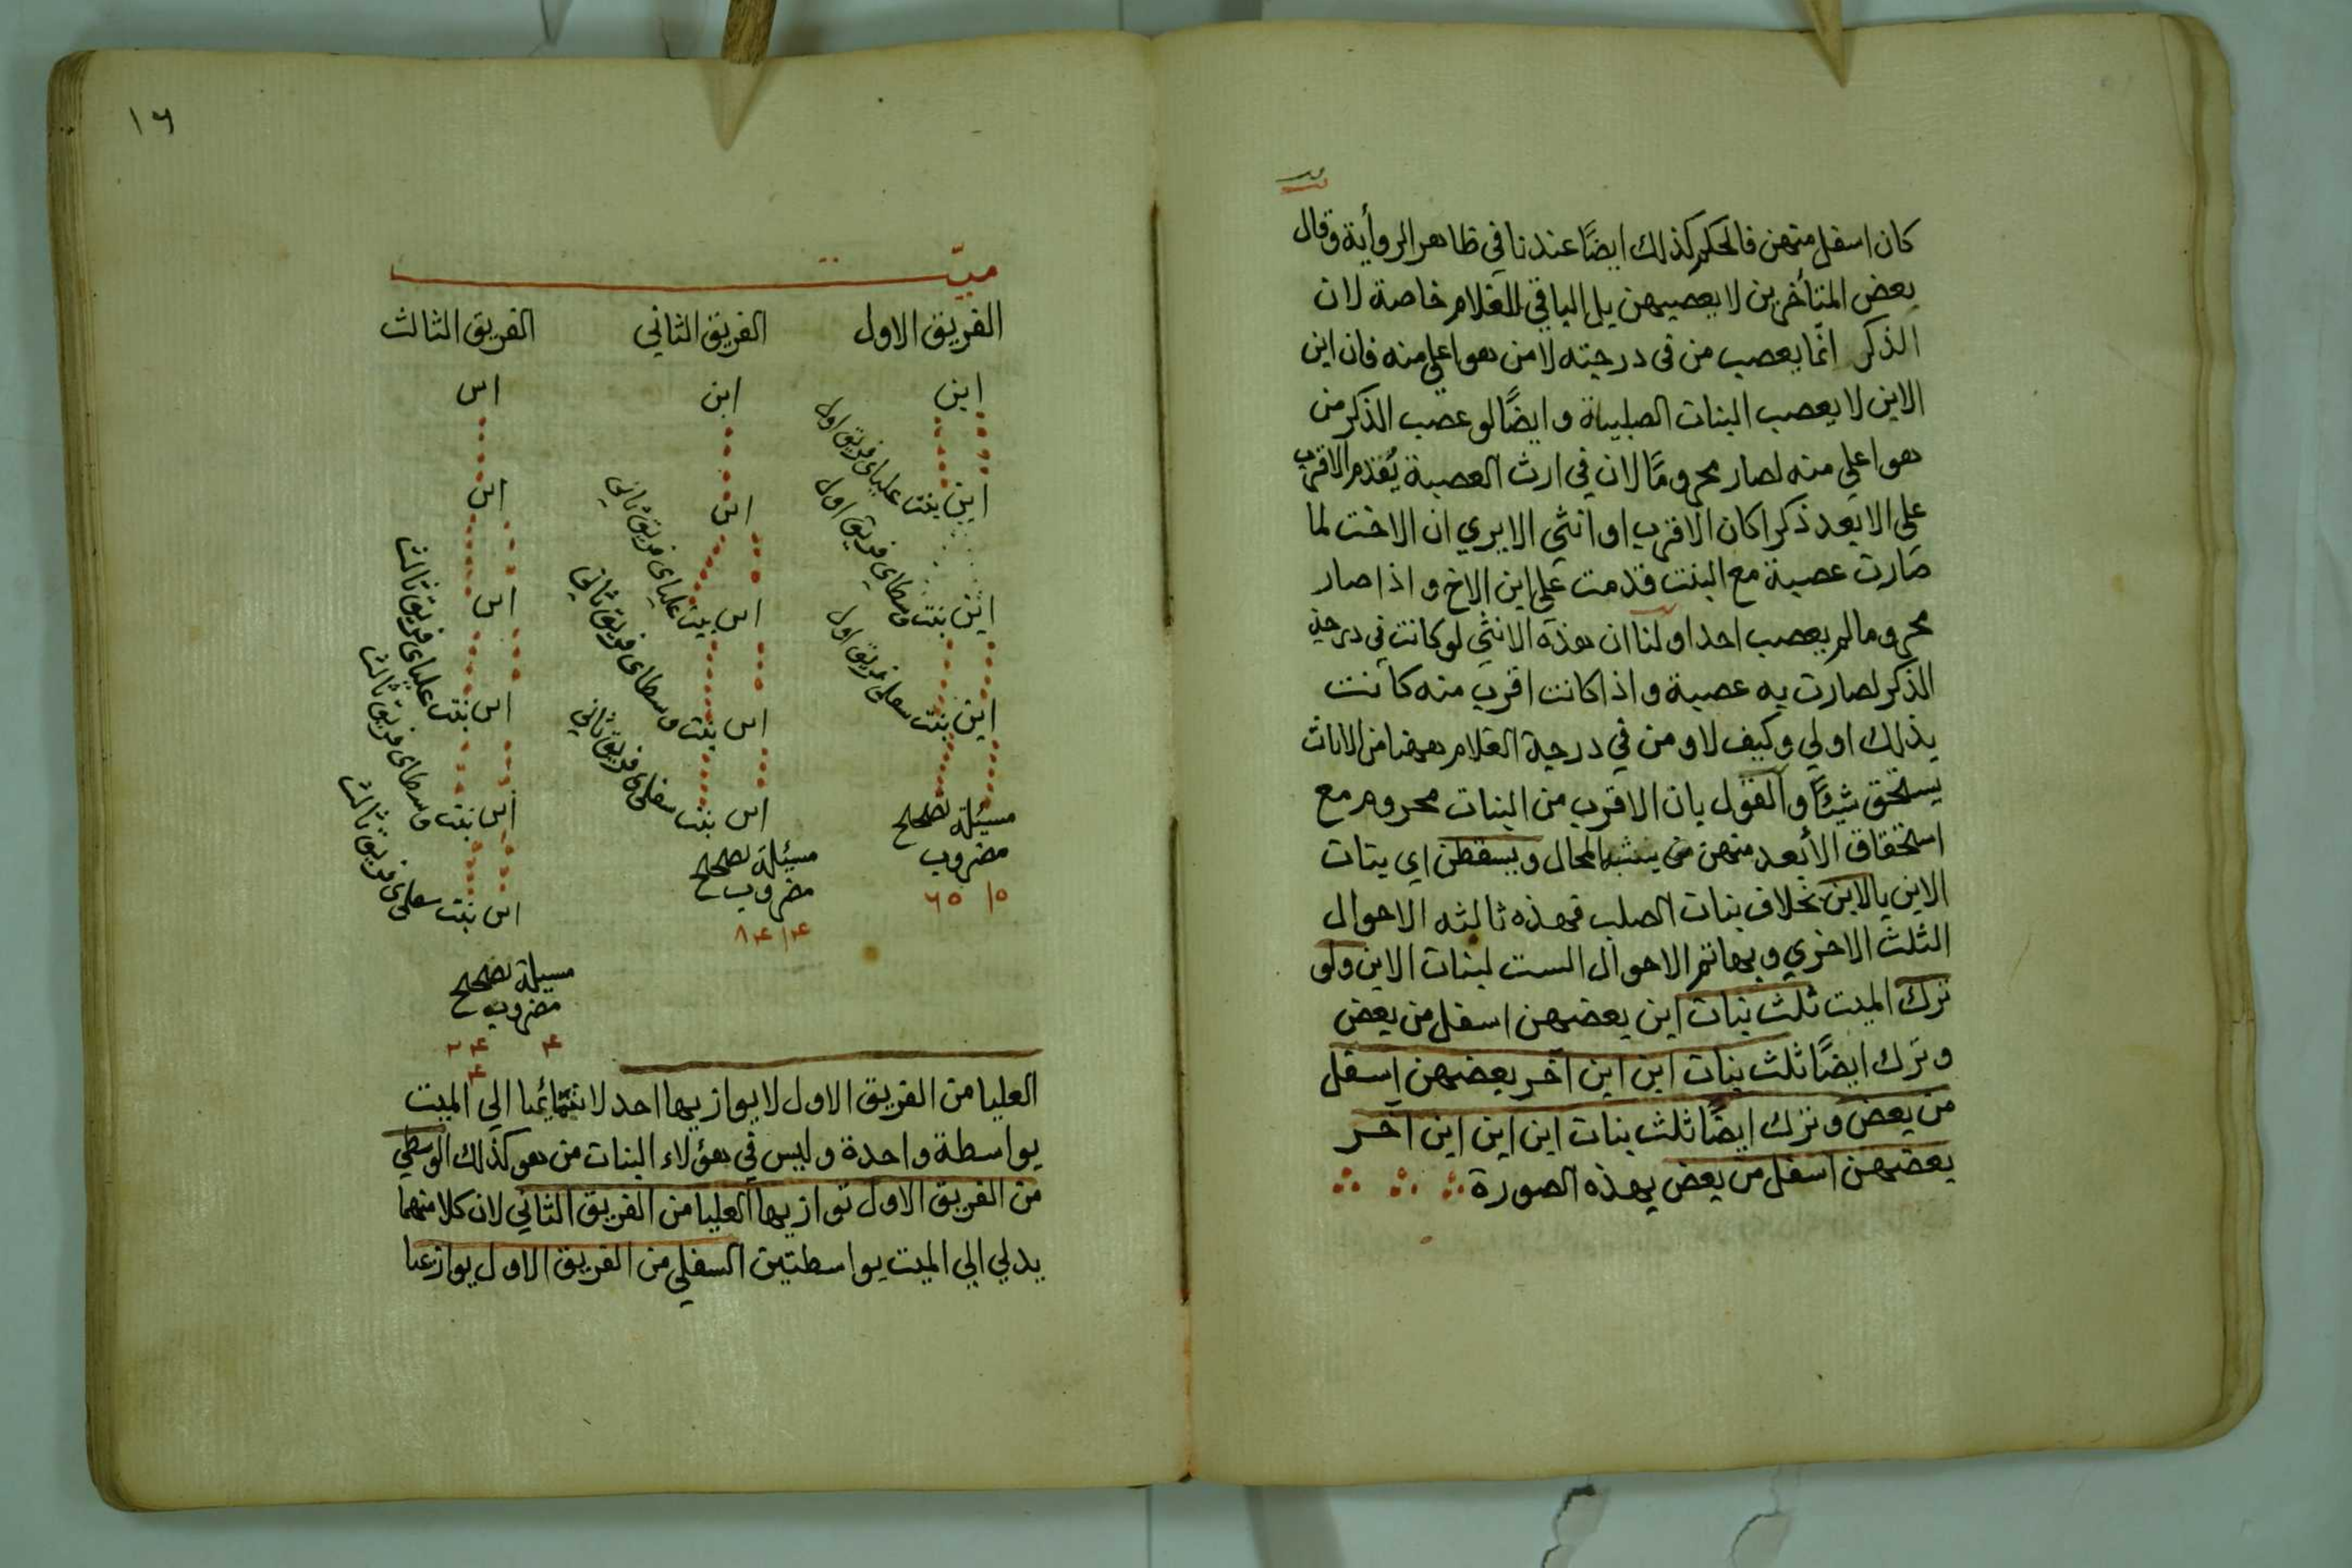 كان اسفل منهن فالحكم كذلك ايضًا عندنا في ظاهر الرواية وقال
بعض المتأخرين لا يعصبهن بل الباقي للغلام خاصة لان
الذكر انما يعصب من في درجته لا من هو اعلي منه فان ابن
الابن لا يعصب البنات الصلبية وايضًا لو عصب الذكر من
هو اعلي منه لصار محرومًا لان في ارث العصبة يُقدم الاقرب
علي الابعد ذكرا كان الاقرب او انثي الا يري ان الاخت لما
صارت عصبة مع البنت قدمت علي ابن الاخ واذا صار
محروما لم يعصب احدا ولنا ان هذه الانثي لو كانت في درجة
الذكر لصارت به عصبة واذا كانت اقرب منه كانت
بذلك اولي وكيف لا ومن في درجة الغلام ههنا من الاناث
يستحق شيئًا والقول بان الاقرب من البنات محروم مع
استحقاق الأبعد منهن مما يشبه المحال ويسقطن اي بنات
الابن بالابن بخلاف بنات الصلب فهذه ثالثه الاحوال
الثلث الاخري وبها تتم الاحوال الست لبنات الابن ولو
ترك الميت ثلث بنات ابن بعضهن اسفل من بعض
وترك ايضًا ثلث بنات ابن ابن آخر بعضهن اسفل
من بعض وترك ايضًا ثلث بنات ابن ابن ابن آخر
بعضهن اسفل من بعض بهذه الصورة
١٦
ميت
الفريق الاول الفريق الثاني الفريق الثالث
ابن ابن ابن
ابن بنت علياى فريق اول ابن ابن
ابن بنت وسطاى فريق اول ابن بنت علياى فريق ثاني ابن
ابن بنت سفلى فريق اول ابن بنت وسطاى فريق ثاني ابن بنت علياى فريق ثالث
ابن بنت سفلى فريق ثاني ابن بنت وسطاى فريق ثالث
ابن بنت سفلى فريق ثالث
مسئلة تصحيح
مضروب
مسئلة تصحيح
مضروب
مسئلة تصحيح
مضروب
العليا من الفريق الاول لا يوازيها احد لانتمائها الي الميت
بواسطة واحدة وليس في هؤلاء البنات من هو كذلك الوسطي
من الفريق الاول توازيها العليا من الفريق الثاني لان كلا منهما
يدلي الي الميت بواسطتين السفلي من الفريق الاول يوازيها